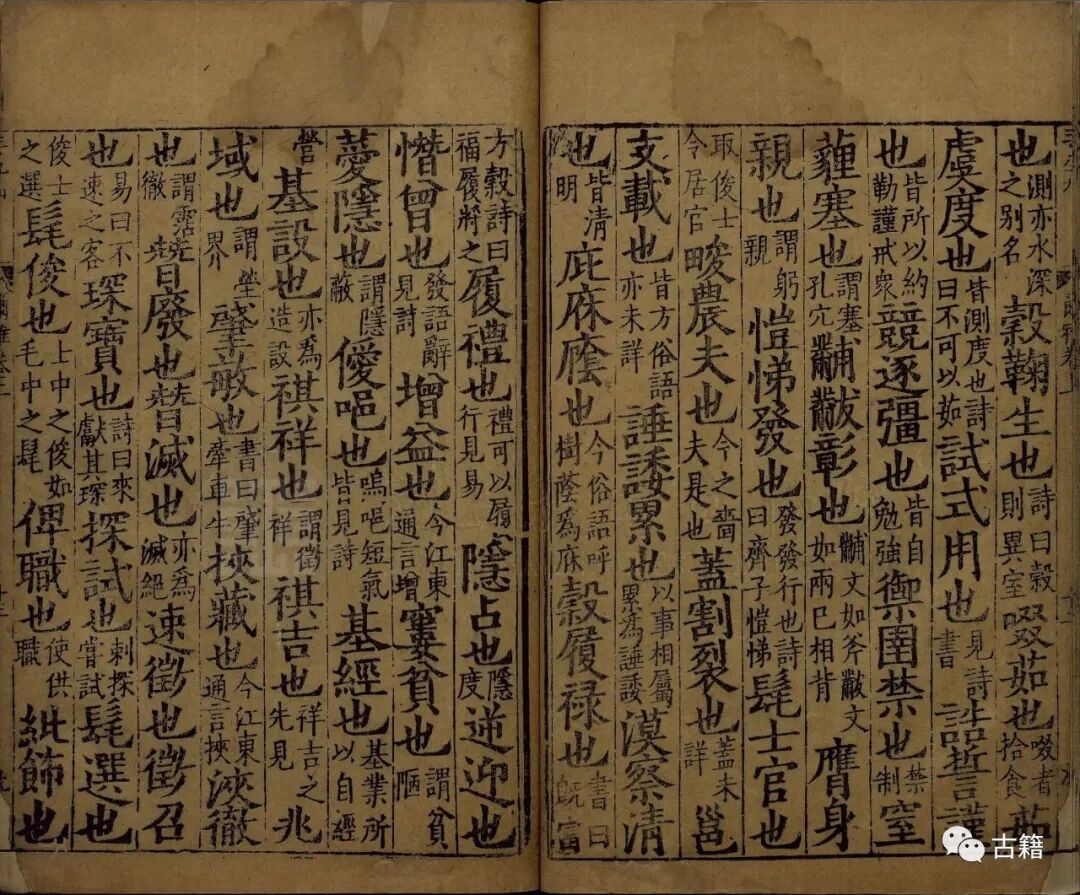 也測亦水深之别名穀鞠生也詩曰穀則異室啜茹也啜者拾食茹
虞度也皆測度也詩曰不可以茹試式用也見詩書誥誓謹
也皆所以約勒謹戒衆競逐彊也皆自勉強禦圉禁也禁制窒
薶塞也謂塞孔穴黼黻彰也黼文如斧黻文如兩巳相背膺身
親也謂躬親愷悌發也發發行也詩曰齊子愷悌髦士官也
取俊士令居官畯農夫也今之嗇夫是也蓋割裂也蓋未詳邕
支載也皆方俗語亦未詳諈諉累也以事相屬累爲諈諉漠察清
也皆清明庇庥廕也今俗語呼樹蔭爲庥穀履禄也書曰旣富
方穀詩曰福履將之履禮也禮可以履行見易隱占也隱度逆迎也
憯曾也發語辭見詩增益也今江東通言增窶貧也謂貧陋
薆隱也謂隱蔽僾唈也嗚唈短氣皆見詩基經也基業所以自經
營基設也亦爲造設祺祥也謂徵祥祺吉也祥吉之先見兆
域也謂塋界肇敏也書曰肇牽車牛挾藏也今江東通言挾浹徹
也謂霑徹朁廢也朁滅也亦爲滅絕速徵也徵召
也易曰不速之客琛寶也詩曰來獻其琛探試也刺探嘗試髦選也
俊士之選髦俊也士中之俊如毛中之髦俾職也使供職紕飾也
古籍